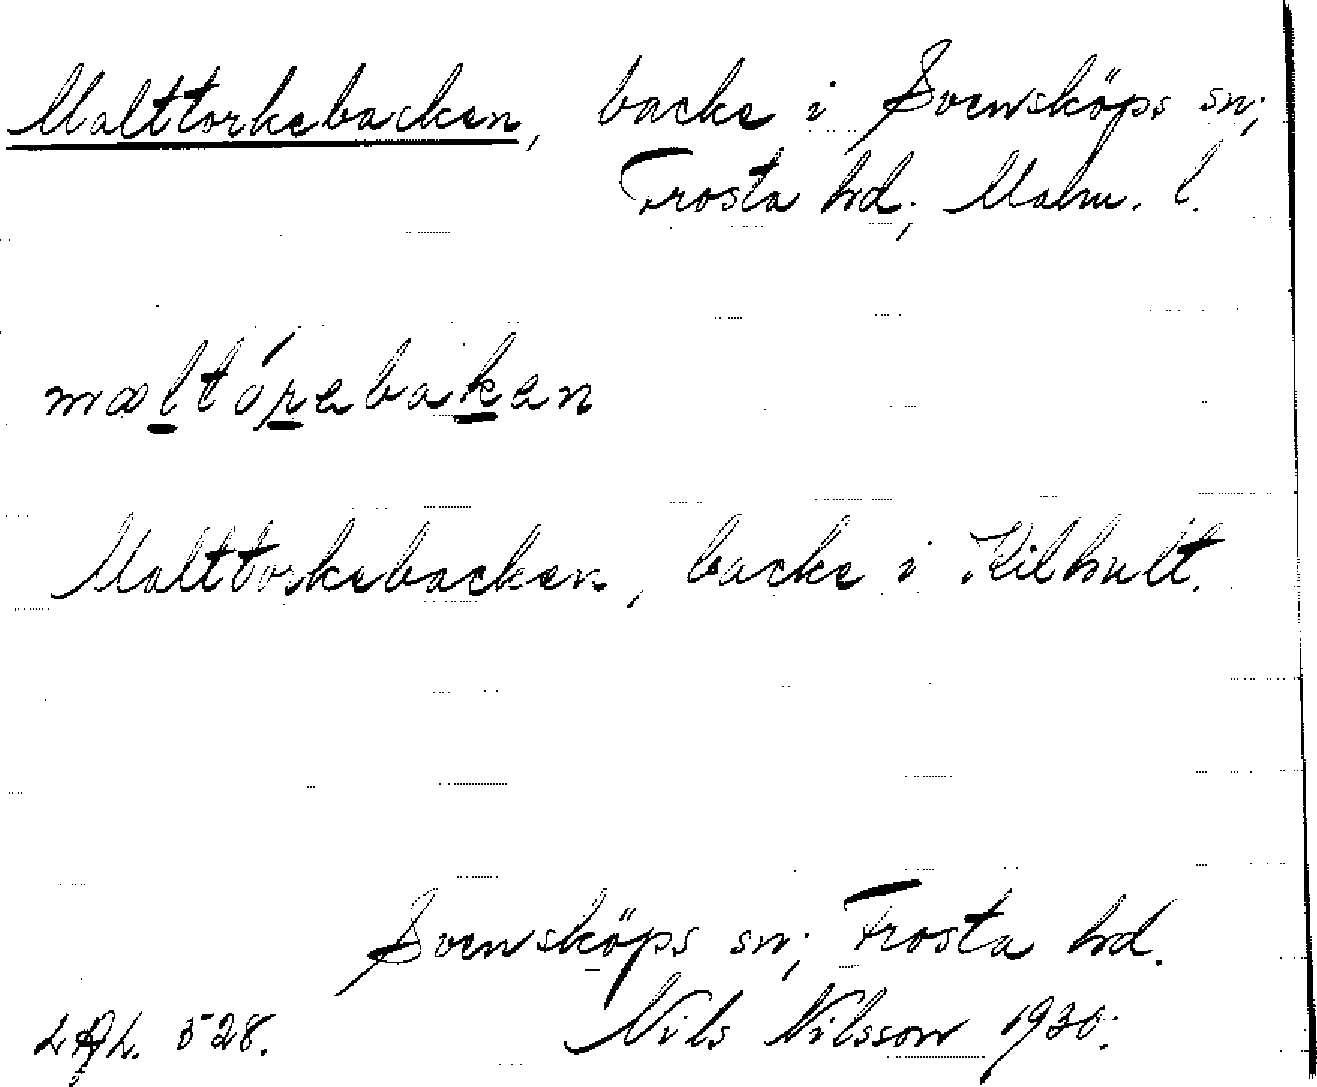 Malttorkebacken, backe i Svensköps sn;
Frosta hd; Malm. l.
mæltórebaken
Malttorkebacken, backe i Kilhult.
Svensköps sn; Frosta hd.
528. Nils Nilsson 1930.